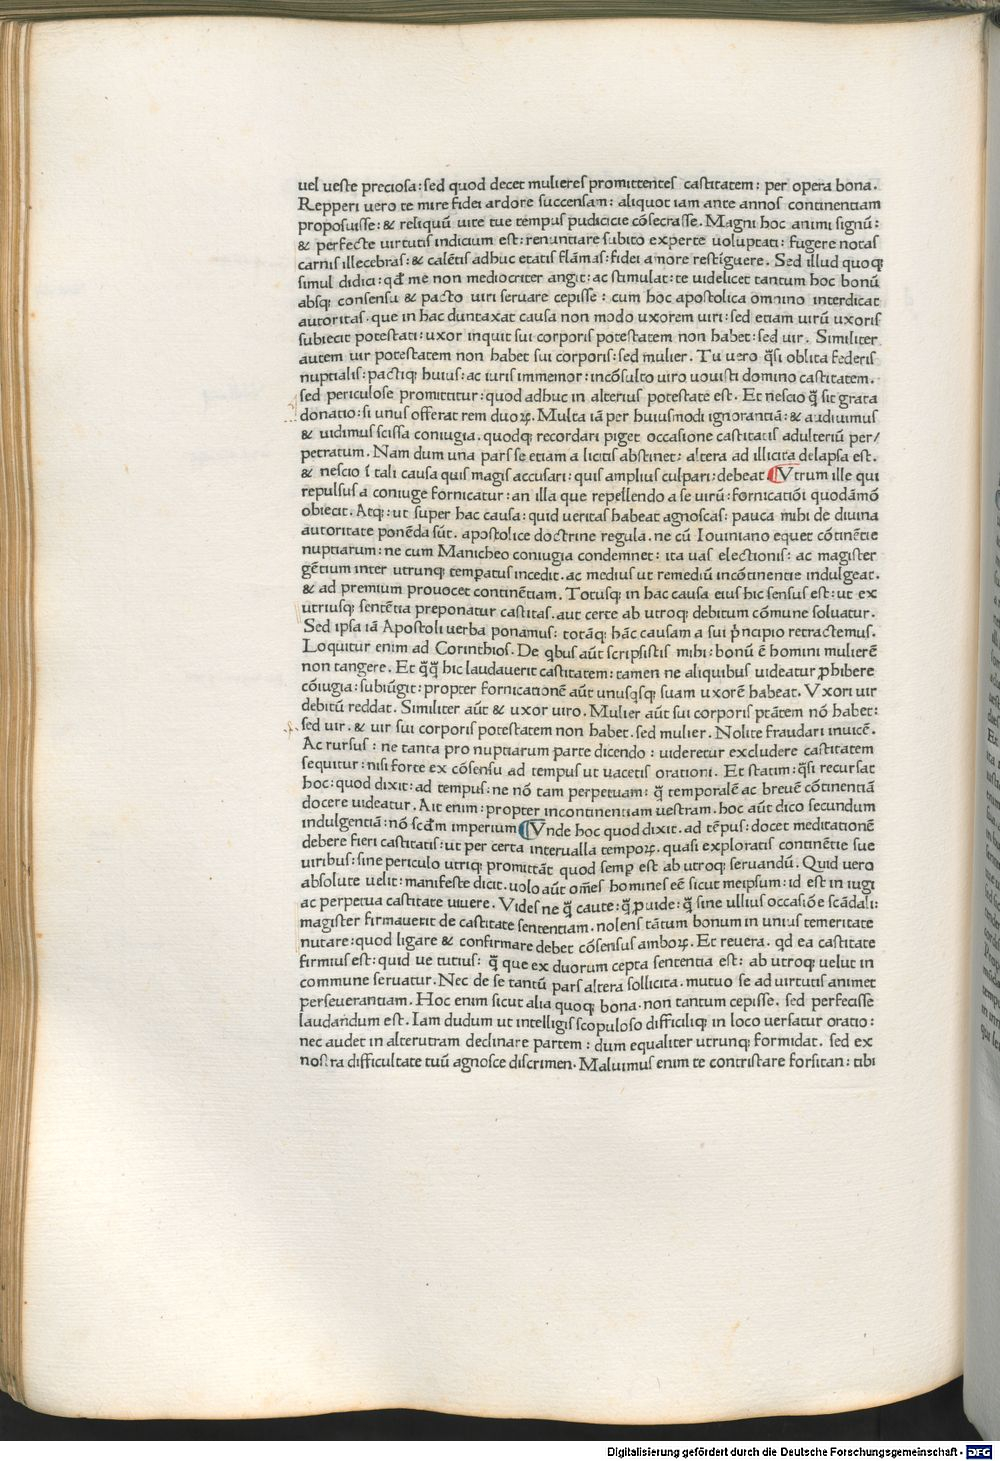 uel ueste preciosa: sed quod decet mulieres promittentes castitatem: per opera bona.
Repperi uero te mire fidei ardore succensam: aliquot iam ante annos continentiam
proposuisse: & reliquū uite tue tempus pudicicie cōsecrasse. Magni hoc animi signū:
& perfecte uirtutis indicium est: renuntiare subito experte uoluptati: fugere notas
carnis illecebras: & calētis adhuc etatis flāmas: fidei amore restiguere. Sed illud quoqꝫ
simul didici: qđ me non mediocriter angit: ac stimulat: te uidelicet tantum hoc bonū
absqꝫ consensu & pacto uiri seruare cepisse: cum hoc apostolica omnino interdicat
autoritas. que in hac duntaxat causa non modo uxorem uiri: sed etiam uirū uxoris
subiecit potestati: uxor inquit sui corporis potestatem non habet: sed uir. Similiter
autem uir potestatem non habet sui corporis: sed mulier. Tu uero q̄si oblita federis
nuptialis: pactiqꝫ huius: ac iuris immemor: incōsulto uiro uouisti domino castitatem.
sed periculose promittitur: quod adhuc in alterius potestate est. Et nescio q̄ sit grata
donatio: si unus offerat rem duoꝝ. Multa iā per huiusmodi ignorantiā: & audiuimus
& uidimus scissa coniugia. quodqꝫ recordari piget occasione castitatis adulteriū per/
petratum. Nam dum una pars se etiam a licitis abstinet: altera ad illicita delapsa est.
& nescio ī tali causa quis magis accusari: quis amplius culpari: debeat. Vtrum ille qui
repulsus a coniuge fornicatur: an illa que repellendo a se uirū: fornicatiōi quodāmō
obiecit. Atqꝫ: ut super hac causa: quid ueritas habeat agnoscas: pauca mihi de diuina
autoritate ponēda sūt. apostolice doctrine regula. ne cū Iouiniano equet cōtinētie
nuptiarum: ne cum Manicheo coniugia condemnet: ita uas electionis: ac magister
gētium inter utrunqꝫ temꝑatus incedit. ac medius ut remediū incōtinentie indulgeat.
& ad premium prouocet continētiam. Totusqꝫ in hac causa eius hic sensus est: ut ex
utriusqꝫ sentētia preponatur castitas. aut certe ab utroqꝫ debitum cōmune soluatur.
Sed ipsa iā Apostoli uerba ponamus: totāqꝫ hāc causam a sui p̄ncipio retractemus.
Loquitur enim ad Corinthios. De qbus aūt scripsistis mihi: bonū ē homini mulierē
non tangere. Et q̄q̄ hic laudauerit castitatem: tamen ne aliquibus uideatur ꝓhibere
cōiugia: subiūgit: propter fornicationē aūt unusqsqꝫ suam uxorē habeat. Vxori uir
debitū reddat. Similiter aūt & uxor uiro. Mulier aūt sui corporis ptātem nō habet:
sed uir. & uir sui corporis potestatem non habet. sed mulier. Nolite fraudari inuicē.
Ac rursus: ne tanta pro nuptiarum parte dicendo: uideretur excludere castitatem
sequitur: nisi forte ex cōsensu ad tempus ut uacetis orationi. Et statim: q̄si recusat
hoc: quod dixit: ad tempus: ne nō tam perpetuam: q̄ temporalē ac breuē cōtinentiā
docere uideatur. Ait enim: propter incontinentiam uestram. hoc aūt dico secundum
indulgentiā: nō scđm imperium Vnde hoc quod dixit. ad tēpus: docet meditationē
debere fieri castitatis: ut per certa interualla tempoꝝ. quasi exploratis continētie sue
uiribus: sine periculo utriqꝫ promittāt quod semꝑ est ab utroqꝫ seruandū. Quid uero
absolute uelit: manifeste dicit. uolo aūt om̄es homines eē sicut meipsum: id est in iugi
ac perpetua castitate uiuere. Vides ne q̄ caute: q̄ ꝓuide: q̄ sine ullius occasiōe scādali:
magister firmauerit de castitate sententiam. nolens tātum bonum in unius temeritate
nutare: quod ligare & confirmare debet cōsensus amboꝝ. Et reuera. qd ea castitate
firmius est: quid ue tutius: q̄ que ex duorum cepta sententia est: ab utroqꝫ uelut in
commune seruatur. Nec de se tantū pars altera sollicita. mutuo se ad uirtutis animet
perseuerantiam. Hoc enim sicut alia quoqꝫ bona. non tantum cepisse. sed perfecisse
laudandum est. Iam dudum ut intelligis scopuloso difficiliqꝫ in loco uersatur oratio:
nec audet in alterutram declinare partem: dum equaliter utrunqꝫ formidat. sed ex
nostra difficultate tuū agnosce discrimen. Maluimus enim te contristare forsitan: tibi
Digitalisierung gefördert durch die Deutsche Forschungsgemeinschaft - DFG